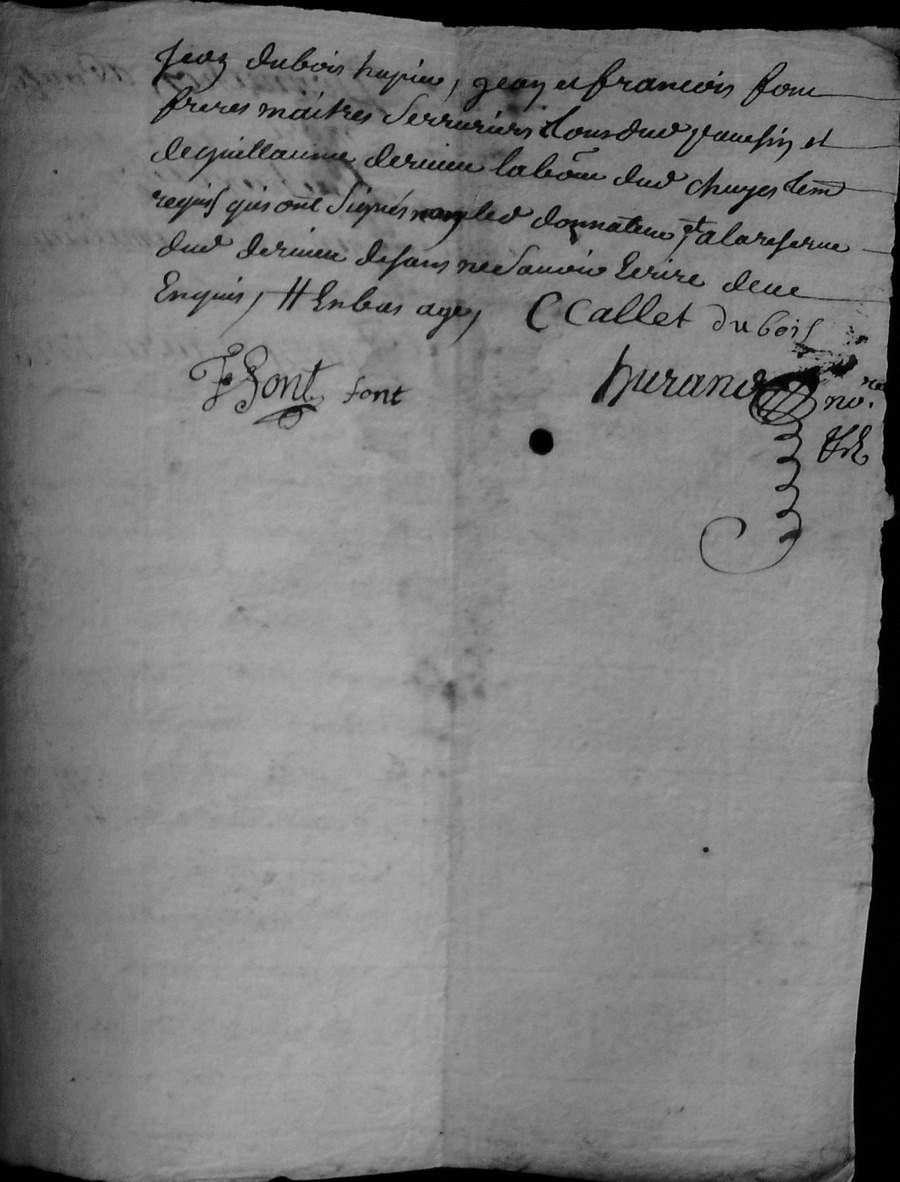 Jean dubois huyier, jean et francois fon
freres maitres Serruriers tous dud
de guillaume dernieu labour dud chuyes tem
requis qui ont Signés led donnateur et ala reserve
dud dernieu de faus ne Savoir Ecrire deue
Enquis, // En bas age,
C Callet dubois
F Font font
Durand nore